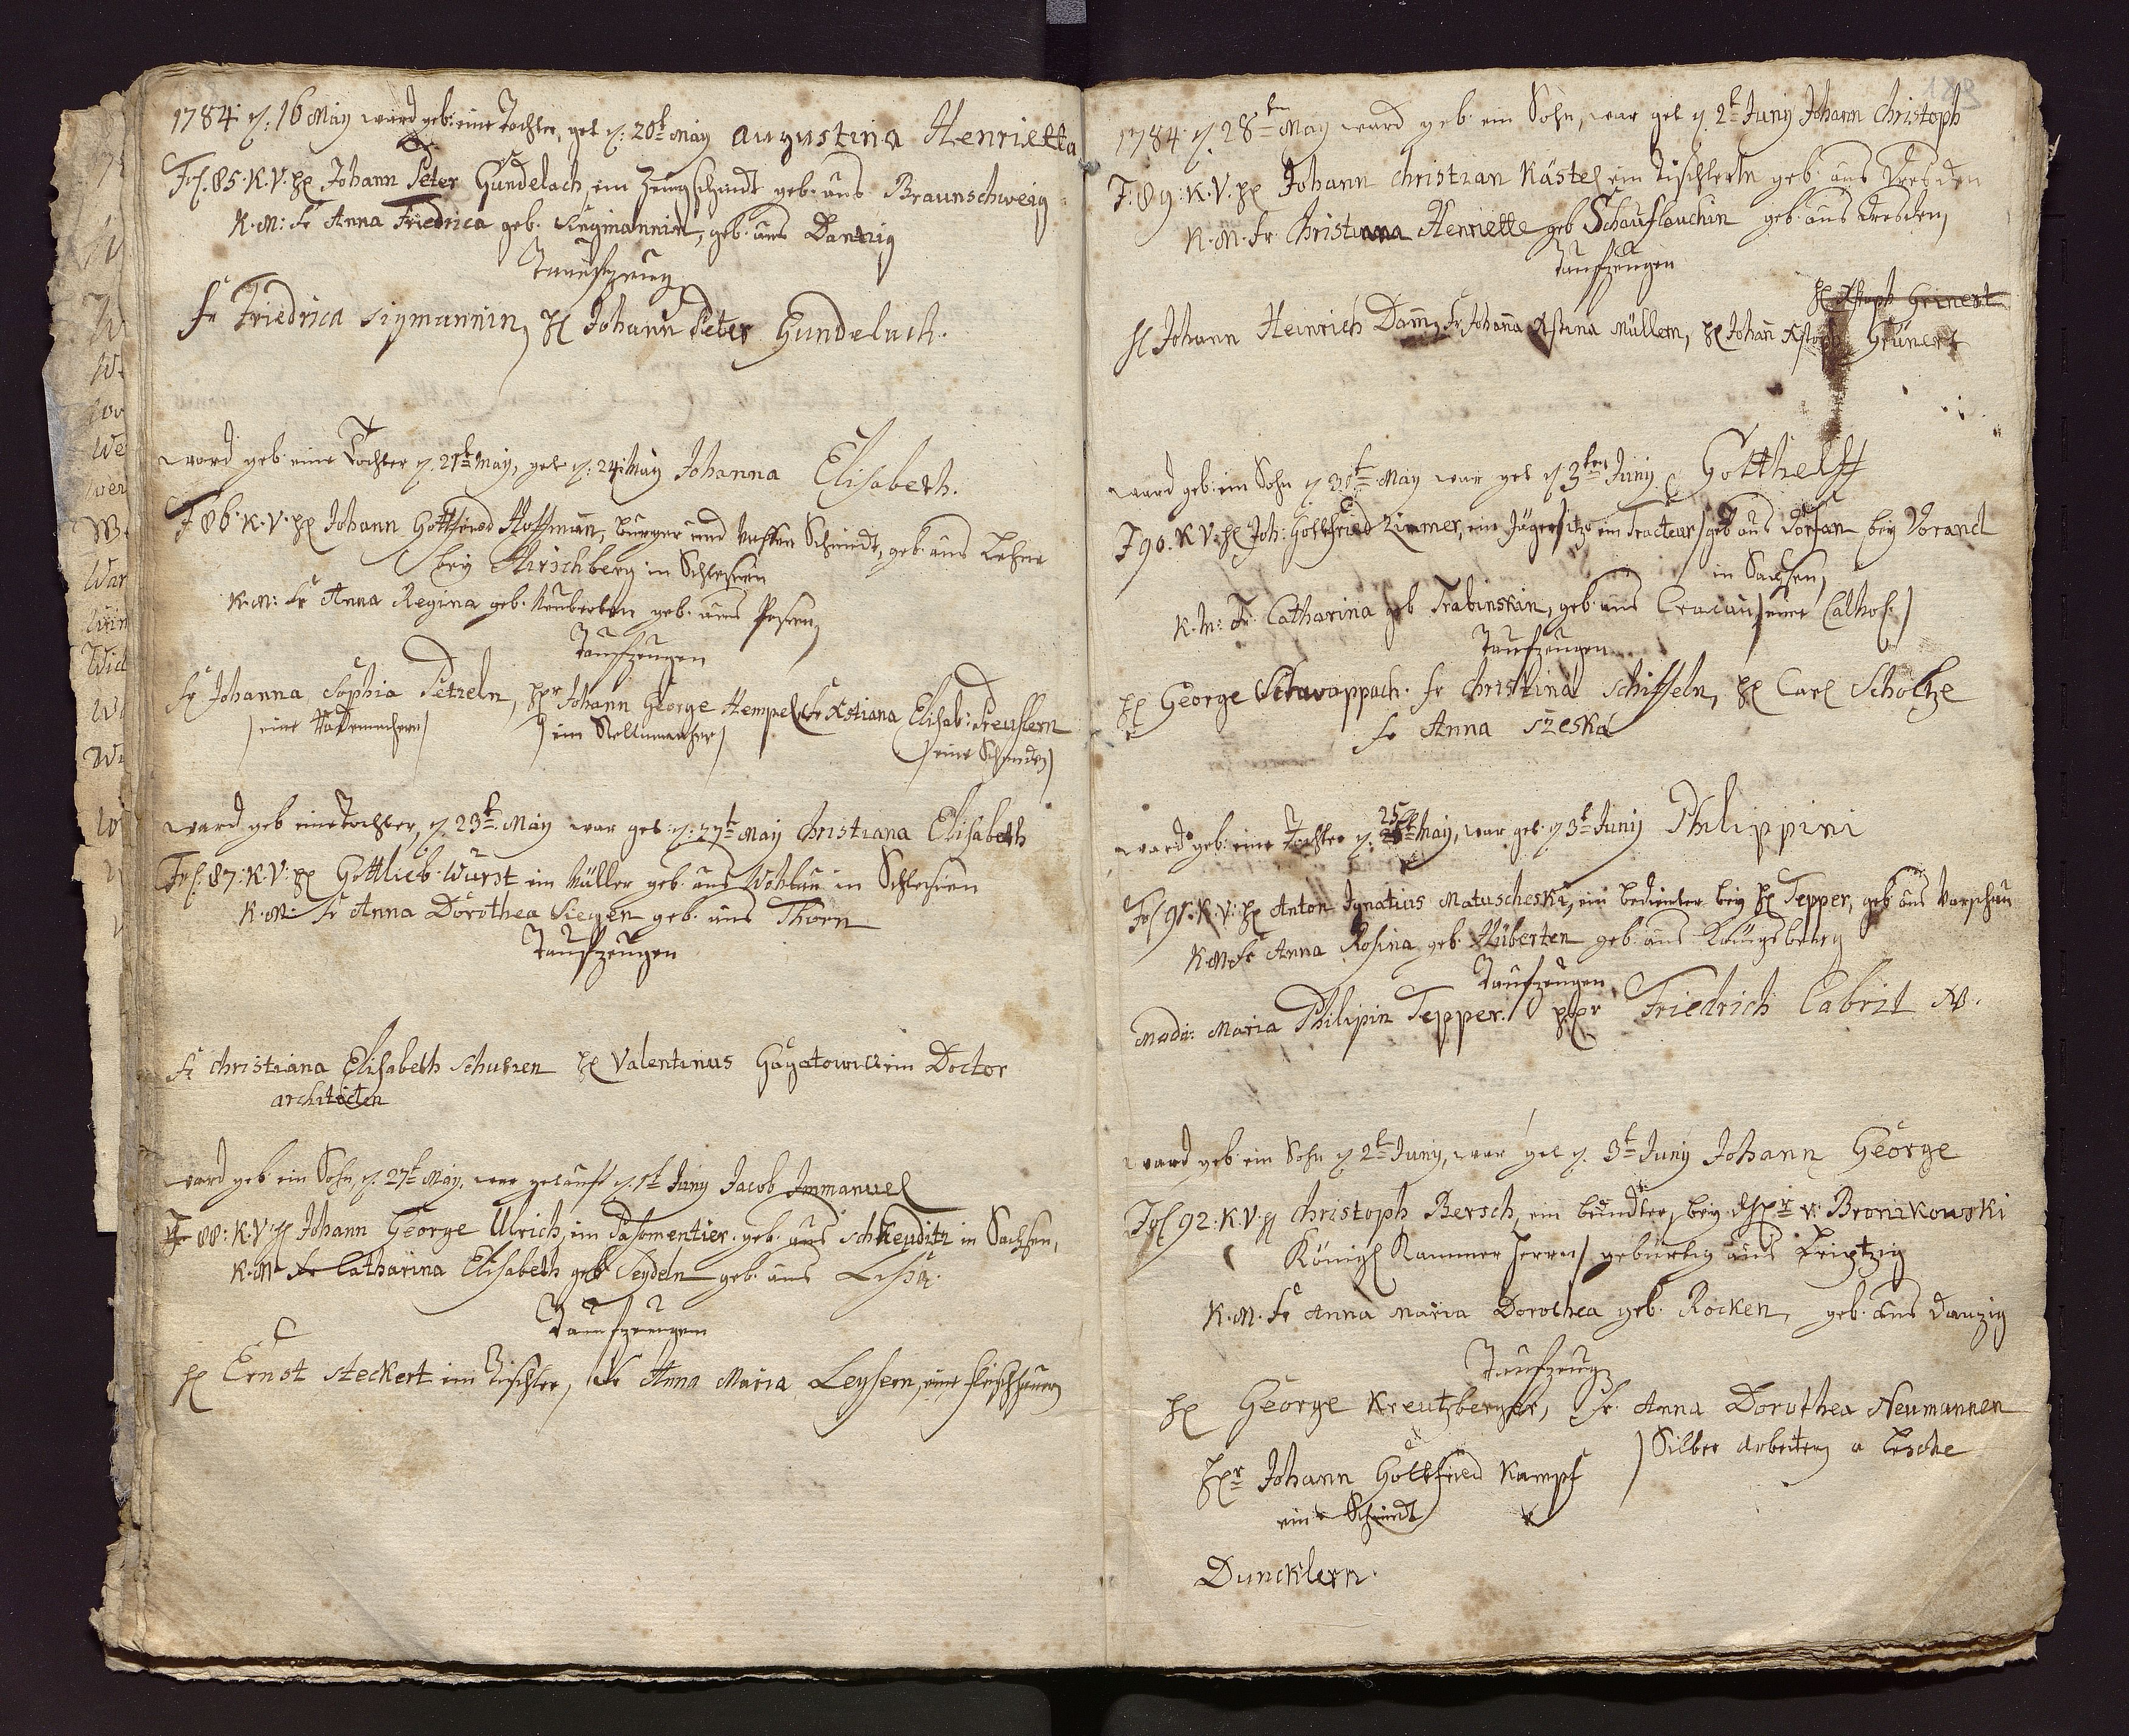 1784 d: 16 May ward geb: eine Tochter, get d: 20t May Augustina Henrietta
Fol. 85. K. V. H Johann Peter Gundelach, ein Zeugschmidt geb. aus Braunschweig
K. M: Fr Anna Friedrica geb. Sigmannin, geb. aus Dantzig
Taufzeug
Fr Friedrica Sigmannin, H Johann Peter Gundelach.
ward geb eine Tochter d. 21t May, get d: 24 May Johanna Elisabeth.
F 86. K. V. H Johann Gottfried Hoffmann, bürger und Schmidt, geb. aus Lehne
bey Hirschberg in Schlesien
K. M: Fr Anna Regina geb. geb. aus Posen
Taufzeugen
Fr Johanna Sophia Petzeln, Hr Johann George Hempel, Fr Xstiana Elisab: Preuslern
(eine Rademachern) (ein Stellmacher) (eine Schmidin)
ward geb eine Tochter, d. 23t May war get: d: 27t May Christiana Elisabeth
Fol. 87: K. V: H Gottlieb Wurst ein Müller geb. aus Wohlau in Schlesien
K. M: Fr Anna Dorothea Siegen geb. aus Thorn
Taufzeugen
Fr Christiana Elisabeth Schultzen H Valentinus Gagatowicz ein Doctor
architecten
ward geb ein Sohn d. 27t May, war getauft d. 1t Juny Jacob Immanuel
F 88: K. V. H Johann George Ulrich, ein Pasomentier. geb. aus Schkeuditz in Sachsen,
K. M Fr Catharina Elisabeth geb Seydeln geb. aus Lissa.
Taufzeugen
H Ernst Steckert ein Tischler, Fr Anna Maria Leysern, eine Fleischhauern
189
1784 d. 28ten May ward geb. ein Sohn, war get d. 2t Juny Johann Christoph
F. 89. K. V. H Johann Christian Kästel ein Tischler geb. aus Dresden
K. M. Fr. Christiana Henriette geb Schauflauchin geb. aus Dresden
Taufzeugen
H Xstoph Grinert
H Johann Heinrich Damm, Fr Johanna Xstina Müllern, H Johann Xstoph Grünert
ward geb. ein Sohn d 30t May war get d 3ten Juny Gotthelff
F 90. K V. H Joh: Gottfried Zimmer, ein Jäger (itzo ein Tracteur) geb aus Dorfan bey Vorand
in Sachsen
K. M: Fr Catharina geb Trabinskin, geb. aus Cracau (eine Cathol.)
Taufzeugen
H George Schwappach. Fr Christina Schiffeln, H Carl Scholtze
Fr Anna Szeska
25
ward geb. eine Tochter d. May, war get. d 3t Juny Philippini
Fol 91. K. V: H Anton Ignatius Matuscheski, ein bedienter bey H Tepper, geb aus Warschau
K. M Fr Anna Rosina geb. Hüberten geb. aus Königsberg
Taufzeugen
Mada: Maria Philipin Tepper. Hr Friedrich Cabrit
ward geb ein Sohn d 2t Juny, war get d. 3t Juny Johann George
Fol 92. K. V. H Christoph Bersch, ein bedienter, bey v. Bronikowski
Königl Kammer Herrn) gebürtig aus Leiptzig
K. M. Fr Anna Maria Dorothea geb. Rocken, geb. aus Danzig
Taufzeug
H George Kreutzberger, Fr. Anna Dorothea Neumannen
(Silber Arbeiterin a Lesche
Hr Johann Gottfried Kampf
ein Schmidt
Duncklern.